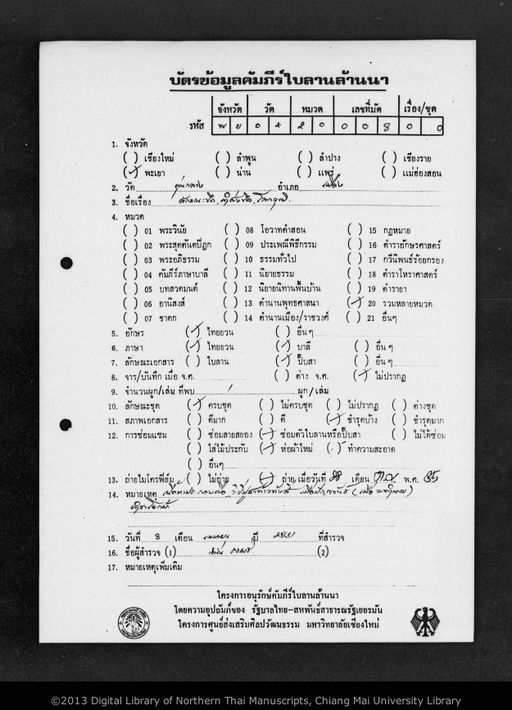 บัตรข้อมูลคัมภีร์ใบลานล้านนา
จังหวัด วัด หมวด เลขที่มัด เรื่อง/ชุด
รหัส พ ย ๐ ๕ ๒ ๐ ๐ ๐ 8 ๐ ๐
1. จังหวัด
( ) เชียงใหม่ ( ) ลำพูน ( ) ลำปาง ( ) เชียงราย
(✓) พะเยา ( ) น่าน ( ) แพร่ ( ) แม่ฮ่องสอน
2. วัด อำเภอ เมือง
3. ชื่อเรื่อง
4. หมวด
( ) 01 พระวินัย ( ) 08 โอวาทคำสอน ( ) 15 กฎหมาย
( ) 02 พระสุตตันตปิฎก ( ) 09 ประเพณีพิธีกรรม ( ) 16 ตำราอักษรศาสตร์
( ) 03 พระอภิธรรม ( ) 10 ธรรมทั่วไป ( ) 17 กวีนิพนธ์ร้อยกรอง
( ) 04 คัมภีร์ภาษาบาลี ( ) 11 นิยายธรรม ( ) 18 ตำราโหราศาสตร์
( ) 05 บทสวดมนต์ ( ) 12 นิยายนิทานพื้นบ้าน ( ) 19 ตำรายา
( ) 06 อานิสงส์ ( ) 13 ตำนานพุทธศาสนา (✓) 20 รวมหลายหมวด
( ) 07 ชาดก ( ) 14 ตำนานเมือง/ราชวงศ์ ( ) 21 อื่นๆ
5. อักษร (✓) ไทยยวน ( ) อื่นๆ
6. ภาษา (✓) ไทยยวน (✓) บาลี ( ) อื่นๆ
7. ลักษณะเอกสาร ( ) ใบลาน (✓) ปั๊บสา ( ) อื่นๆ
8. จาร/บันทึก เมื่อ จ.ศ. ( ) ต่าง จ.ศ. (✓) ไม่ปรากฏ
9. จำนวนผูก/เล่ม ที่พบ 1 ผูก/เล่ม
10. ลักษณะชุด (✓) ครบชุด ( ) ไม่ครบชุด ( ) ไม่ปรากฏ ( ) ต่างชุด
11. สภาพเอกสาร ( ) ดีมาก ( ) ดี (✓) ชำรุดบ้าง ( ) ชำรุดมาก
12. การซ่อมแซม ( ) ซ่อมสายสยอง (✓) ซ่อมตัวใบลานหรือปั๊บสา ( ) ไม่ได้ซ่อม
( ) ใส่ไม้ประกับ (✓) ห่อผ้าใหม่ (✓) ทำความสะอาด
( ) อื่นๆ
13. ถ่ายไมโครฟิล์ม ( ) ไม่ถ่าย (✓) ถ่าย เมื่อวันที่ เดือน พ.ศ. 35
14. หมายเหตุ
15. วันที่ 3 เดือน เมษายน ปี 2531 ที่สำรวจ
16. ชื่อผู้สำรวจ (1) (2)
17. หมายเหตุเพิ่มเติม
โครงการอนุรักษ์คัมภีร์ใบลานล้านนา
โดยความอุปถัมภ์ของ รัฐบาลไทย-สหพันธ์สาธารณรัฐเยอรมัน
โครงการศูนย์ส่งเสริมศิลปวัฒนธรรม มหาวิทยาลัยเชียงใหม่
©2013 Digital Library of Northern Thai Manuscripts, Chiang Mai University Library